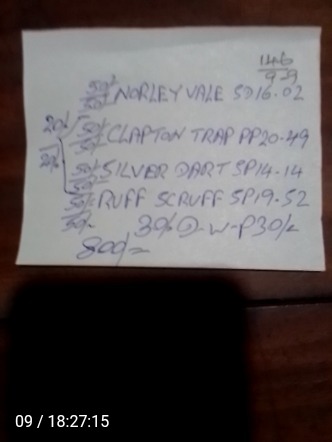 146
99
50/- 50/- NORLEY VALE SD16.02
20/- 50/- 50/- CLAPTON TRAP PP20-49
20/- 50/- 50/- SILVER DART SP14-14
50/- 50/- RUFF SCRUFF SP19.52
30/- D-W-P30/-
800/=